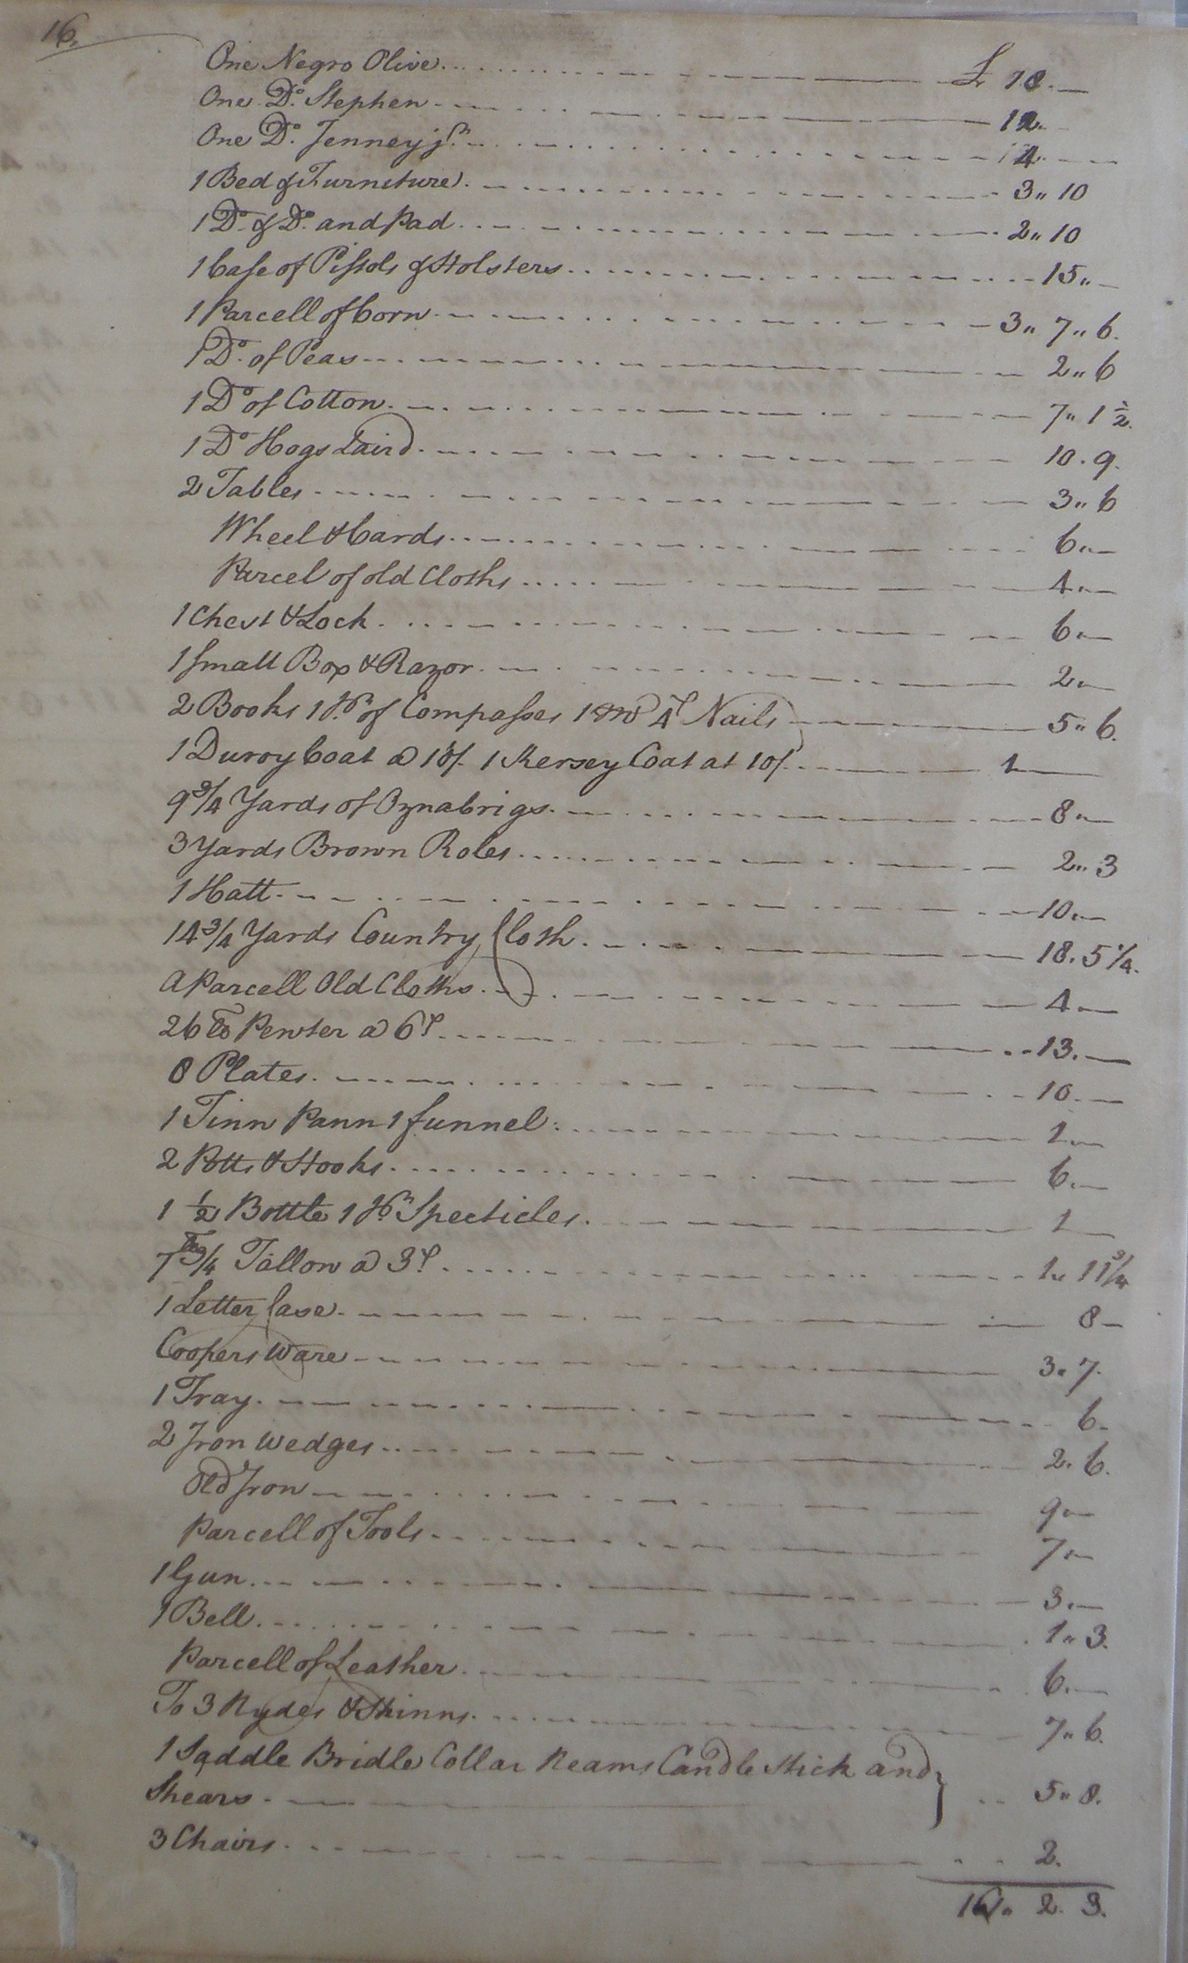 16.
One Negro Olive £ 18. —
One Do. Stephen 12. —
One Do. Jenney jr. 14. —
1 Bed & Furniture 3 " 10
1 Do. & Do. and Pad 2 " 10
1 Case of Pistols & Holsters 15 " —
1 Parcell of Corn 3 " 7 " 6.
1 Do. of Peas 2 " 6
1 Do of Cotton 7 " 1 1/2.
1 Do Hogs Laird 10 . 9.
2 Tables 3 " 6
Wheel & Cards 6 " —
Parcel of old Cloths 4 " —
1 Chest & Lock 6 " —
1 Small Box & Razor 2 " —
2 Books 1 Pr. of Compasses 1 4d Nails 5 " 6.
1 Duroy Coat a 10/. 1 Kersey Coat at 10/ 1 —
9 3/4 Yards of Oznabrigs 8 " —
3 Yards Brown Roles 2 " 3
1 Hatt 10 " —
14 3/4 Yards Country Cloth 18 . 5 1/4.
A Parcell Old Cloths 4 —
26 lb Pewter a 6d 13. —
8 Plates 10 —
1 Tinn Pann 1 funnel 1 " —
2 Potts & Hooks 6 " —
1 1/2 Bottle 1 Pr. Specticles 1 —
7 lb 3/4 Tallow a 3d. 1 " 11 3/4
1 Letter Case 8 —
Coopers Ware 3 " 7.
1 Tray 6 -
2 Iron Wedges 2 . 6.
Old Iron 9 " —
Parcell of Tools 7 " —
1 Gun 3 . —
1 Bell 1 " 3.
Parcell of Leather 6 . —
To 3 Hydes & Skinns 7 " 6.
1 Saddle Bridle Collar Heams Candle Stick and
Shears 5 " 8.
3 Chairs 2.
2. 3.